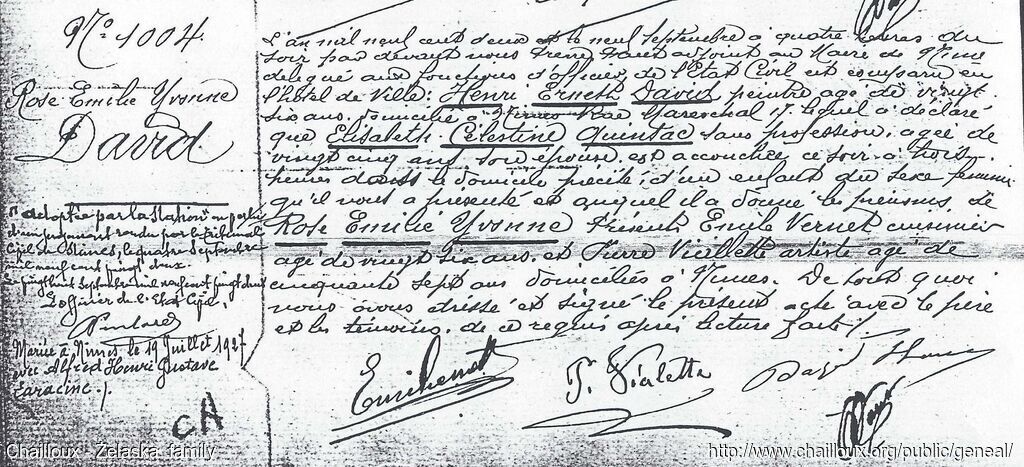 N° 1004.
Rose Emilie Yvonne
David
"adoptée par la Nation" en vertu
d'un jugement rendu par le Tribunal
Civil de Nîmes, le quatre Septembre
mil neuf cent vingt deux.
Le vingt huit Septembre mil neuf cent vingt deux
L'officier de l'Etat Civil,
Marié à Nîmes le 19 Juillet 1927
avec Alfred Henri Gustave
Saracine.
CA
L'an mil neuf cent deux et le neuf Septembre à quatre heures du
soir par devant nous adjoint au Maire de Nîmes
délégué aux fonctions d'officier de l'Etat Civil est comparu en
l'hôtel de Ville: Henri Erneste David peintre agé de vingt
six ans. domicilié à Nîmes Rue Mareschal 17. lequel a déclaré
que Elisabeth Célestine Quintac sans profession, agée de
vingt cinq ans son épouse est accouchée ce soir à trois
heures dans le domicile précité, d'un enfant du sexe féminin
qu'il nous a présenté et auquel il a donné les prénoms de
Rose Emilie Yvonne Présents Emile Vernet cuisinier
agé de vingt six ans. et Pierre Vialette artiste agé de
cinquante sept ans domiciliés à Nîmes. De tout quoi
nous avons dressé et signé le présent acte avec le père
et les témoins. de ce requis après lecture faite.
P. Vialette
David Henri
Chailloux - Zelaska family
http://www.chailloux.org/public/geneal/